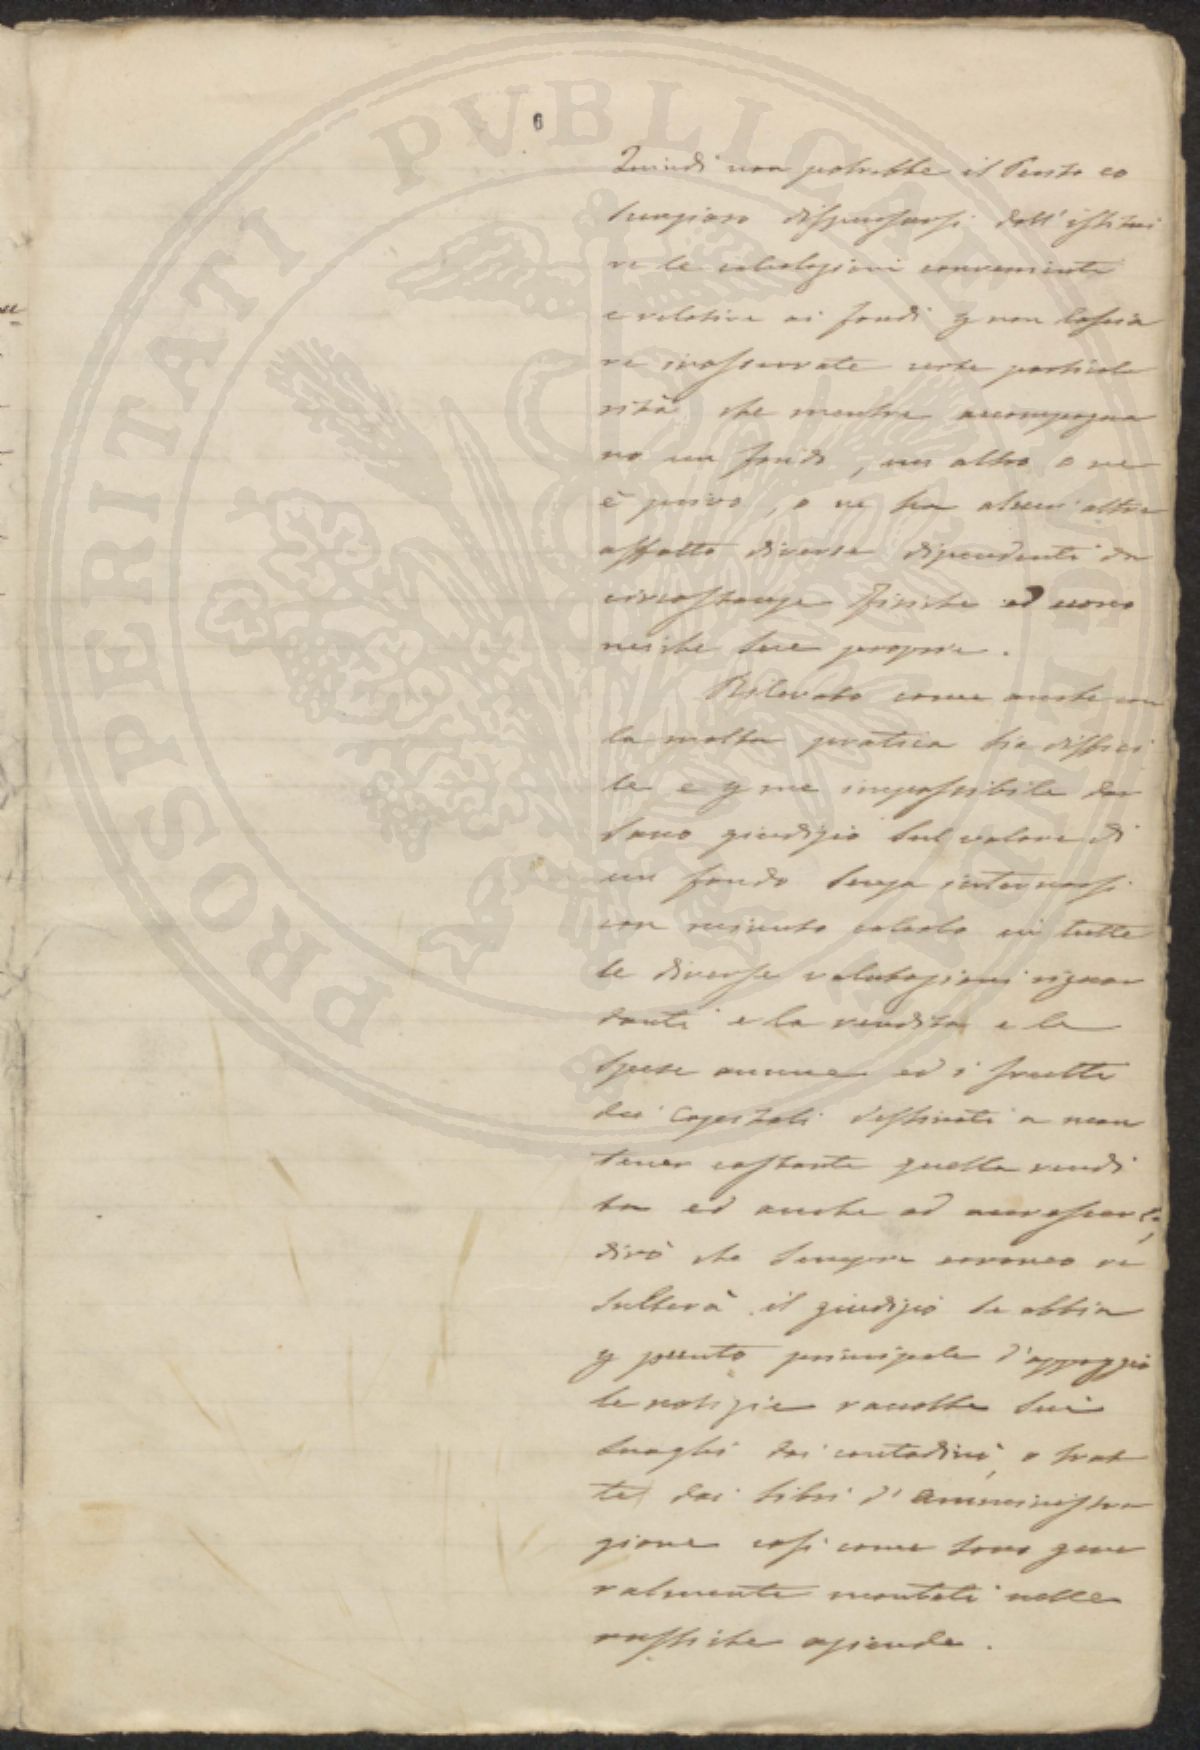 PROSPERITATI PVBLICAE AVGENDAE
6
Quindi non potrebbe il Perito co
scenzioso dispensarsi dall'istitui
re le calcolazioni convenienti
e relative ai fondi p non lascia
re inosservate certe particola
rità che mentre accompagna
no un fondo, un altro o ne
è privo, o ne ha alcun'altre
affatto diverse dipendenti da
circostanze fisiche ed econo
miche sue proprie.
Rilevato come anche con
la molta pratica sia diffici
le e p me impossibile dar
sano giudizio sul valore di
un fondo senza internarsi
con minuto calcolo in tutte
le diverse valutazioni riguar
danti e la rendita e le
spese annue ed i frutti
dei capitali destinati a man
tener costante quella rendi
ta ed anche ad accrescerla,
dirò che sempre erroneo ri
sulterà il giudizio se abbia
p punto principale d'appoggio
le notizie raccolte sui
luoghi dai contadini, o trat
te dai libri d'amministra
zione così come sono gene
ralmente montati nelle
rustiche aziende.